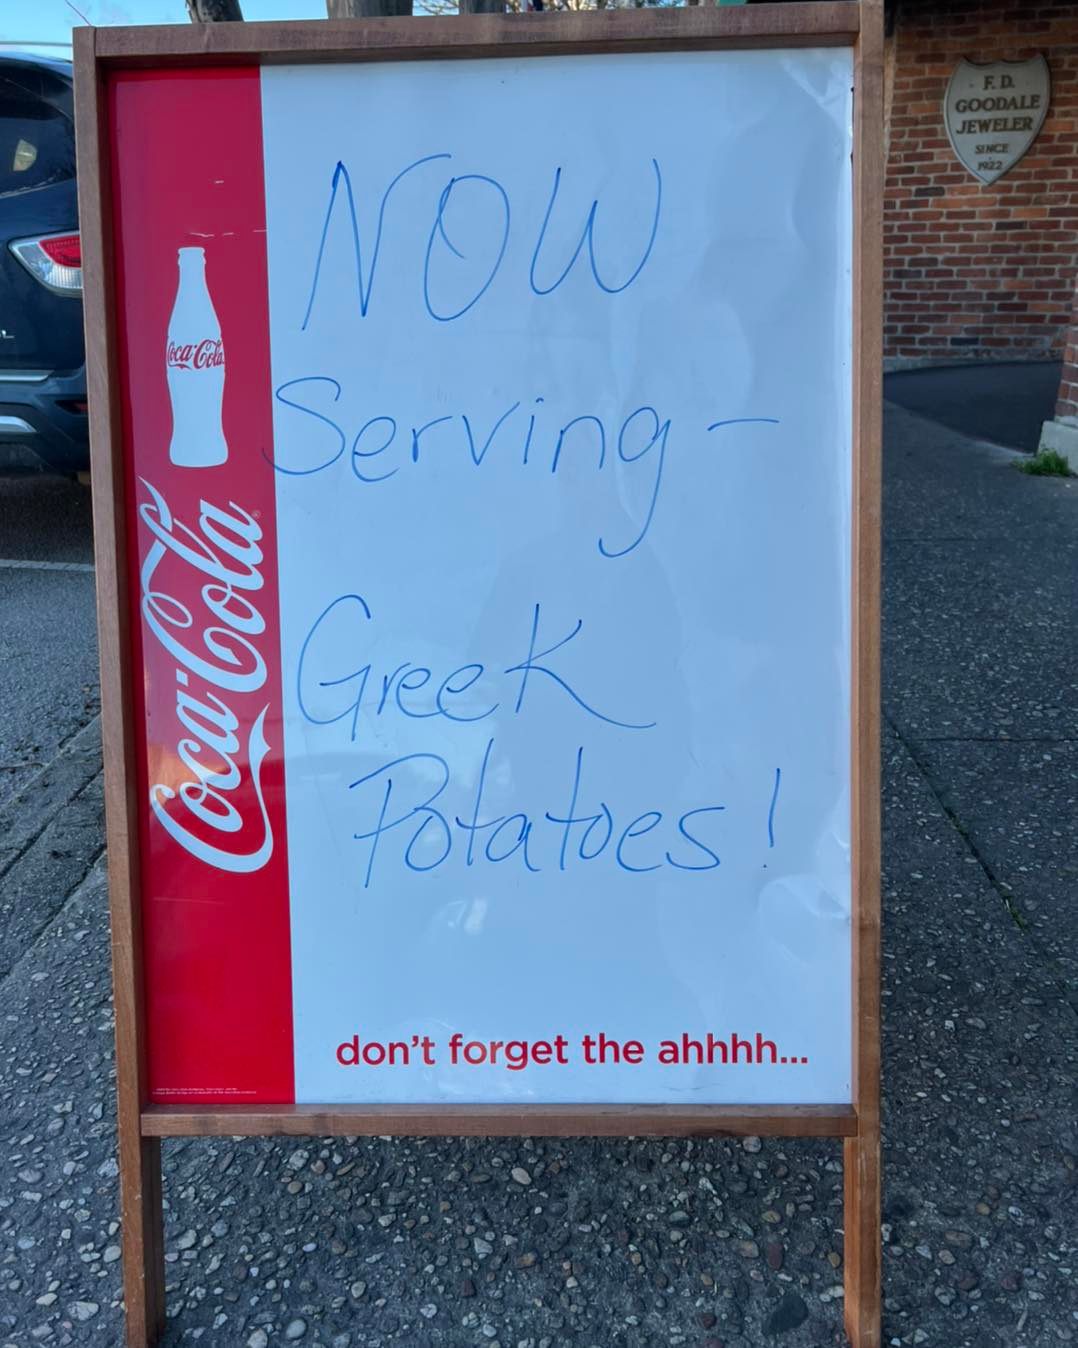 NOW
Serving-
Greek
Potatoes!
don't forget the ahhhh...
Coca-Cola
Coca-Cola®
F.D.
GOODALE
JEWELER
SINCE
1922